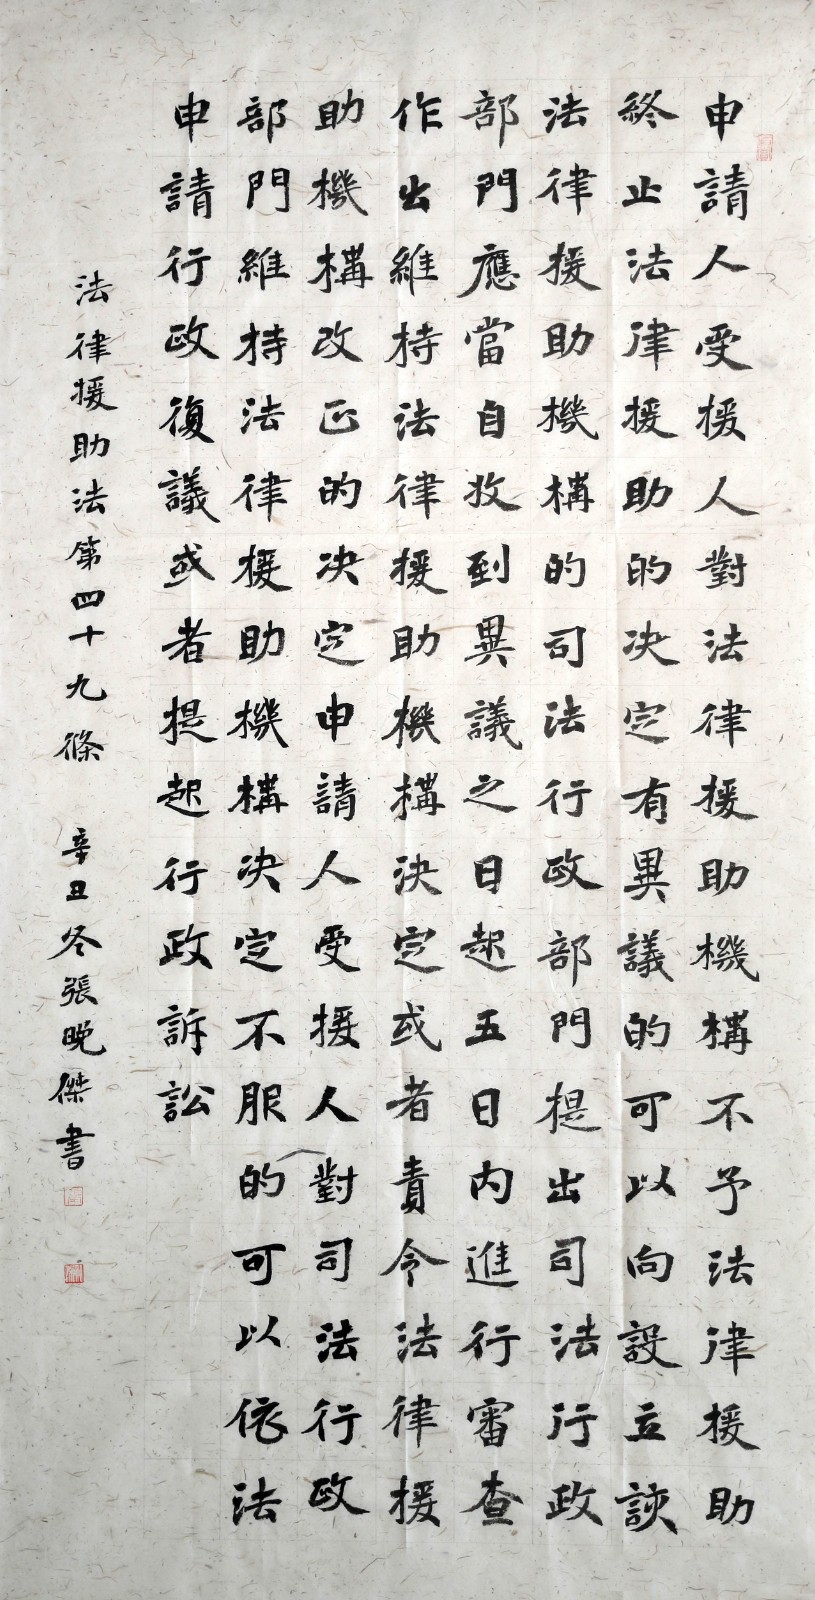 申請人受援人對法律援助機構不予法律援助
終止法律援助的决定有異議的可以向設立該
法律援助機構的司法行政部門提出司法行政
部門應當自收到異議之日起五日内進行審查
作出維持法律援助機構決定或者責令法律援
助機構改正的决定申請人受援人對司法行政
部門維持法律援助機構决定不服的可以依法
申請行政復議或者提起行政訴訟
法律援助法第四十九條 辛丑冬張晚傑書